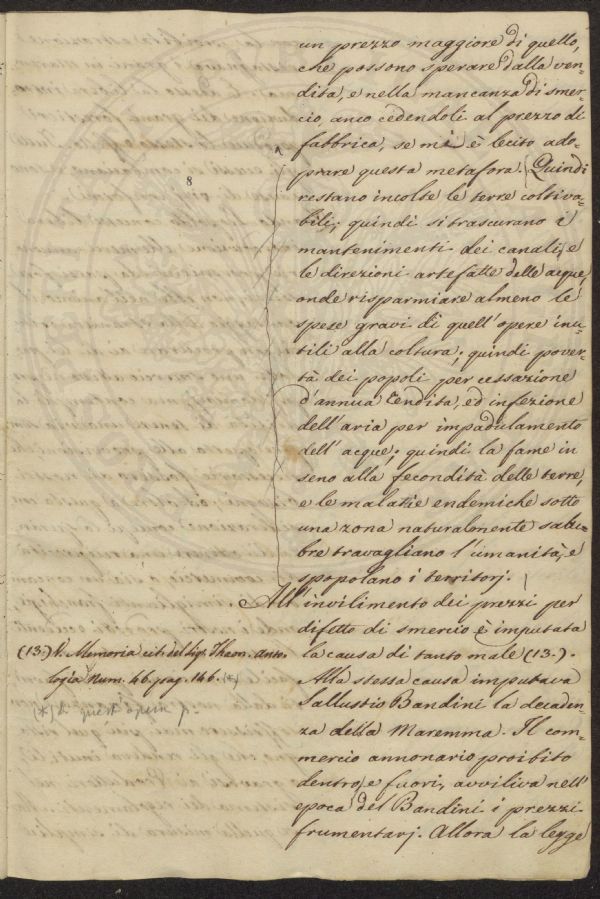 un prezzo maggiore di quello,
che possono sperare dalla ven-
dita, e nella mancanza di smer-
cio, anco cedendoli al prezzo di
fabbrica, se mi è lecito ado-
prare questa metafora. Quindi
restano incolte le terre coltiva-
bili; quindi si trascurano i
mantenimenti dei canali, e
le direzioni artefatte delle acque,
onde risparmiare almeno le
spese gravi di quell'opere inu-
tili alla coltura; quindi pover-
tà dei popoli per cessazione
d'annua rendita, ed infezione
dell'aria per impadulamento
dell'acque; quindi la fame in
seno alla fecondità delle terre,
e le malatie endemiche sotto
una zona naturalmente salu-
bre travagliano l'umanità, e
spopolano i territorj.
All'invilimento dei prezzi per
difetto di smercio è imputata
la causa di tanto male (13.).
Alla stessa causa imputava
Sallustio Bandini la decaden-
za della Maremma. Il com-
mercio annonario proibito
dentro, e fuori, avviliva nell'
epoca del Bandini i prezzi
frumentarj. Allora la legge
8
(13.) V. Memoria cit. del Sig. Thaon. Anto-
logia Num. 46. pag. 146. (*)
(*) di quest'opera p.